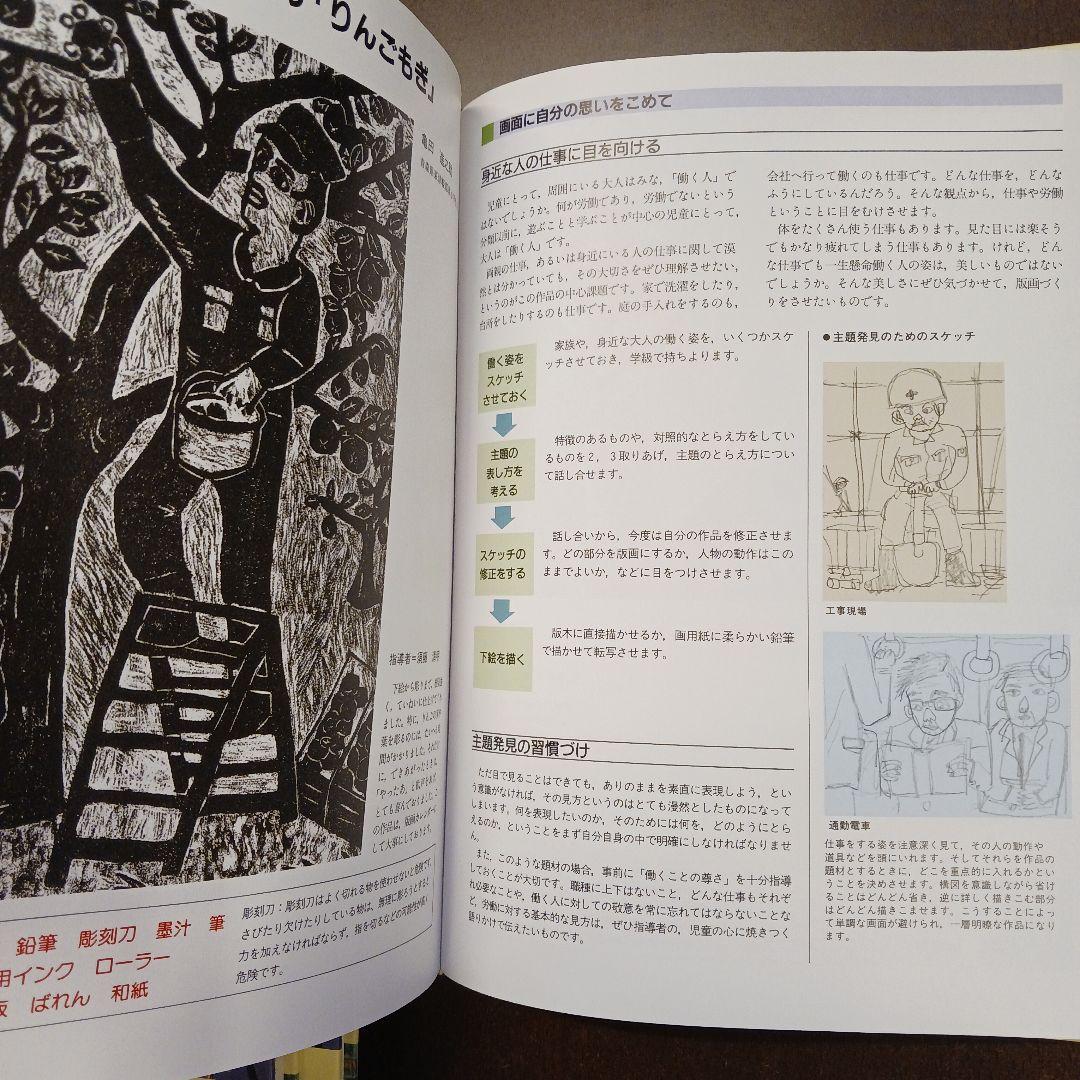 「りんごもぎ」
亀田
指導者＝須藤
下絵から彫りまで、
く、ていねいに仕上げて
ました。特に、りんごの実や
葉を彫るのには、たいへん時
間がかかりました。それだけ
に、できあがったときは、
「やったあ」と歓声をあげ、
とても喜んでおりました。こ
の作品は、版画カレンダーに
して大事にしております。
鉛筆　彫刻刀　墨汁　筆
用インク　ローラー
板　ばれん　和紙
彫刻刀：彫刻刀はよく切れる物を使わせないと危険です。
さびたり欠けたりしている物は、無理に彫ろうとすると
力を加えなければならず、指を切るなどの可能性が高く
危険です。
画面に自分の思いをこめて
身近な人の仕事に目を向ける
児童にとって，周囲にいる大人はみな，「働く人」で
はないでしょうか。何が労働であり，労働でないという
分類以前に，遊ぶことと学ぶことが中心の児童にとって，
大人は「働く人」です。
両親の仕事，あるいは身近にいる人の仕事に関して漠
然とは分かっていても，その大切さをぜひ理解させたい，
というのがこの作品の中心課題です。家で洗濯をしたり，
台所をしたりするのも仕事です。庭の手入れをするのも，
会社へ行って働くのも仕事です。どんな仕事を，どんな
ふうにしているんだろう。そんな観点から，仕事や労働
ということに目をむけさせます。
体をたくさん使う仕事もあります。見た目には楽そう
でもかなり疲れてしまう仕事もあります。けれど，どん
な仕事でも一生懸命働く人の姿は，美しいものではない
でしょうか。そんな美しさにぜひ気づかせて，版画づく
りをさせたいものです。
働く姿を
スケッチ
させておく
家族や，身近な大人の働く姿を，いくつかスケ
ッチさせておき，学級で持ちよります。
主題の
表し方を
考える
特徴のあるものや，対照的なとらえ方をしてい
るものを2，3取りあげ，主題のとらえ方につい
て話し合せます。
スケッチの
修正をする
話し合いから，今度は自分の作品を修正させま
す。どの部分を版画にするか，人物の動作はこの
ままでよいか，などに目をつけさせます。
下絵を描く
版木に直接描かせるか，画用紙に柔らかい鉛筆
で描かせて転写させます。
●主題発見のためのスケッチ
工事現場
通勤電車
仕事をする姿を注意深く見て，その人の動作や
道具などを頭にいれます。そしてそれらを作品の
題材とするときに，どこを重点的に入れるかとい
うことを決めさせます。構図を意識しながら省け
ることはどんどん省き，逆に詳しく描きこむ部分
はどんどん描きこませます。こうすることによっ
て単調な画面が避けられ，一層明瞭な作品になり
ます。
主題発見の習慣づけ
ただ目で見ることはできても，ありのままを素直に表現しよう，とい
う意識がなければ，その見方というのはとても漫然としたものになって
しまいます。何を表現したいのか，そのためには何を，どのようにとら
えるのか，ということをまず自分自身の中で明確にしなければなりませ
ん。
また，このような題材の場合，事前に「働くことの尊さ」を十分指導
しておくことが大切です。職種に上下はないこと，どんな仕事もそれぞ
れ必要なことや，働く人に対しての敬意を常に忘れてはならないことな
ど，労働に対する基本的な見方は，ぜひ指導者の，児童の心に焼きつく
語りかけで伝えたいものです。